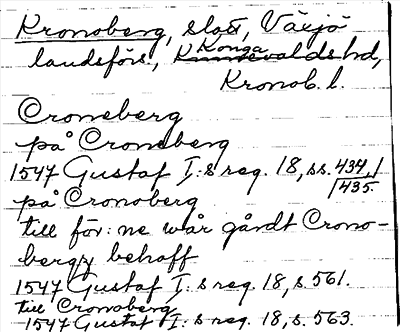 Kronoberg, slott, Växjö
landsförs., Konga hd,
Kronob. l.
Croneberg
på Croneberg
1547 Gustaf I:s reg. 18, ss. 434,
435.
på Cronoberg
till för:ne wår gårdt Crono-
bergz behoff
1547 Gustaf I:s reg. 18, s. 561.
till Cronoberg
1547 Gustaf I:s reg. 18, s. 563.